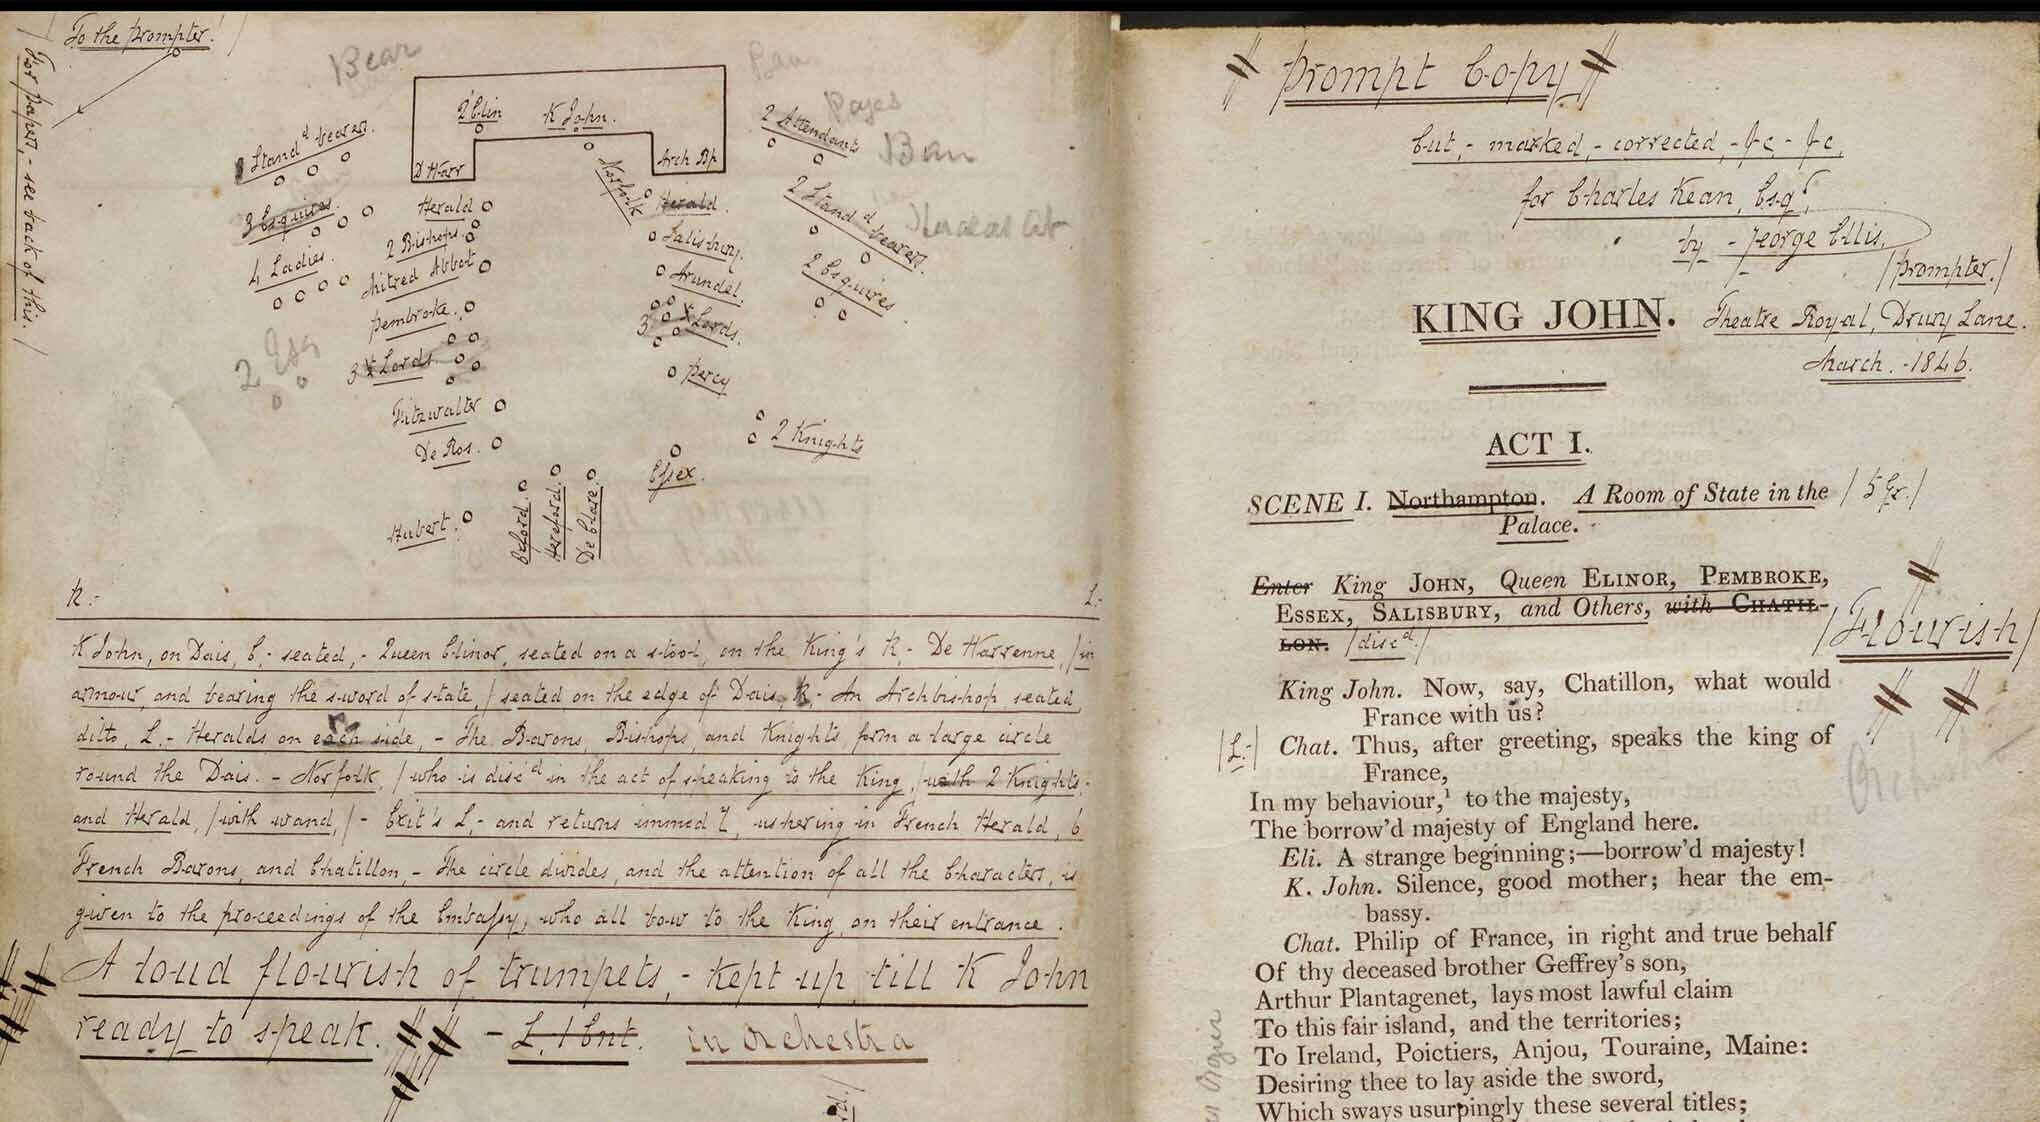 To the prompter!
/ For papers, - see back of this. /
Bear
Ban
Pages
Ban
Q Elin
K John.
D Warr
Arch Bp
2 Attendants
Stand^d bearers.
3 Esquires.
4 Ladies.
2 Esq
Herald
2 Bishops.
Mitred Abbot
Pembroke.
3 Lords.
Fitzwalter
De Ros.
Hubert.
Norfolk
Herald.
Salisbury.
Arundel.
3 Lords.
Percy
Essex.
2 Knights
2 Stand^d bearers.
2 Esquires
Oxford.
Hereford.
De Clare.
R.-
L.-
K John, on Dais, C,- seated,- Queen Elinor, seated on a stool, on the King's R,- De Warrenne, /in
armour, and bearing the sword of state,/ seated on the edge of Dais, R - An Archbishop, seated,
ditto, L.- Heralds on each side,- The Barons, Bishops, and Knights form a large circle
round the Dais. - Norfolk, /who is disc^d in the act of speaking to the King,/ with 2 Knights,-
and Herald, /with wand,/ - Exit's L,- and returns immed^y, ushering in French Herald, 6
French Barons, and Chatillon,- The circle divides, and the attention of all the Characters, is
given to the proceedings of the Embassy, who all bow to the King, on their entrance.
A loud flourish of trumpets,- kept up, till K John
ready to speak. - L. 1 Ent. in Orchestra
# Prompt Copy #
Cut,- marked,- corrected,- &c - &c,
for Charles Kean, Esq^r,
by - George Ellis,
/Prompter./
KING JOHN. Theatre Royal, Drury Lane.
March. - 1846.
ACT I.
SCENE I. Northampton. A Room of State in the / 5 Gr. /
Palace.
Enter King JOHN, Queen ELINOR, PEMBROKE,
ESSEX, SALISBURY, and Others, with CHATIL-
LON. /disc^d./
/Flourish/
King John. Now, say, Chatillon, what would
France with us?
/L.-/ Chat. Thus, after greeting, speaks the king of
France,
Orchestra
In my behaviour,¹ to the majesty,
The borrow'd majesty of England here.
Eli. A strange beginning;—borrow'd majesty!
K. John. Silence, good mother; hear the em-
bassy.
Chat. Philip of France, in right and true behalf
Of thy deceased brother Geffrey's son,
Arthur Plantagenet, lays most lawful claim
To this fair island, and the territories;
To Ireland, Poictiers, Anjou, Touraine, Maine:
Desiring thee to lay aside the sword,
Which sways usurpingly these several titles;